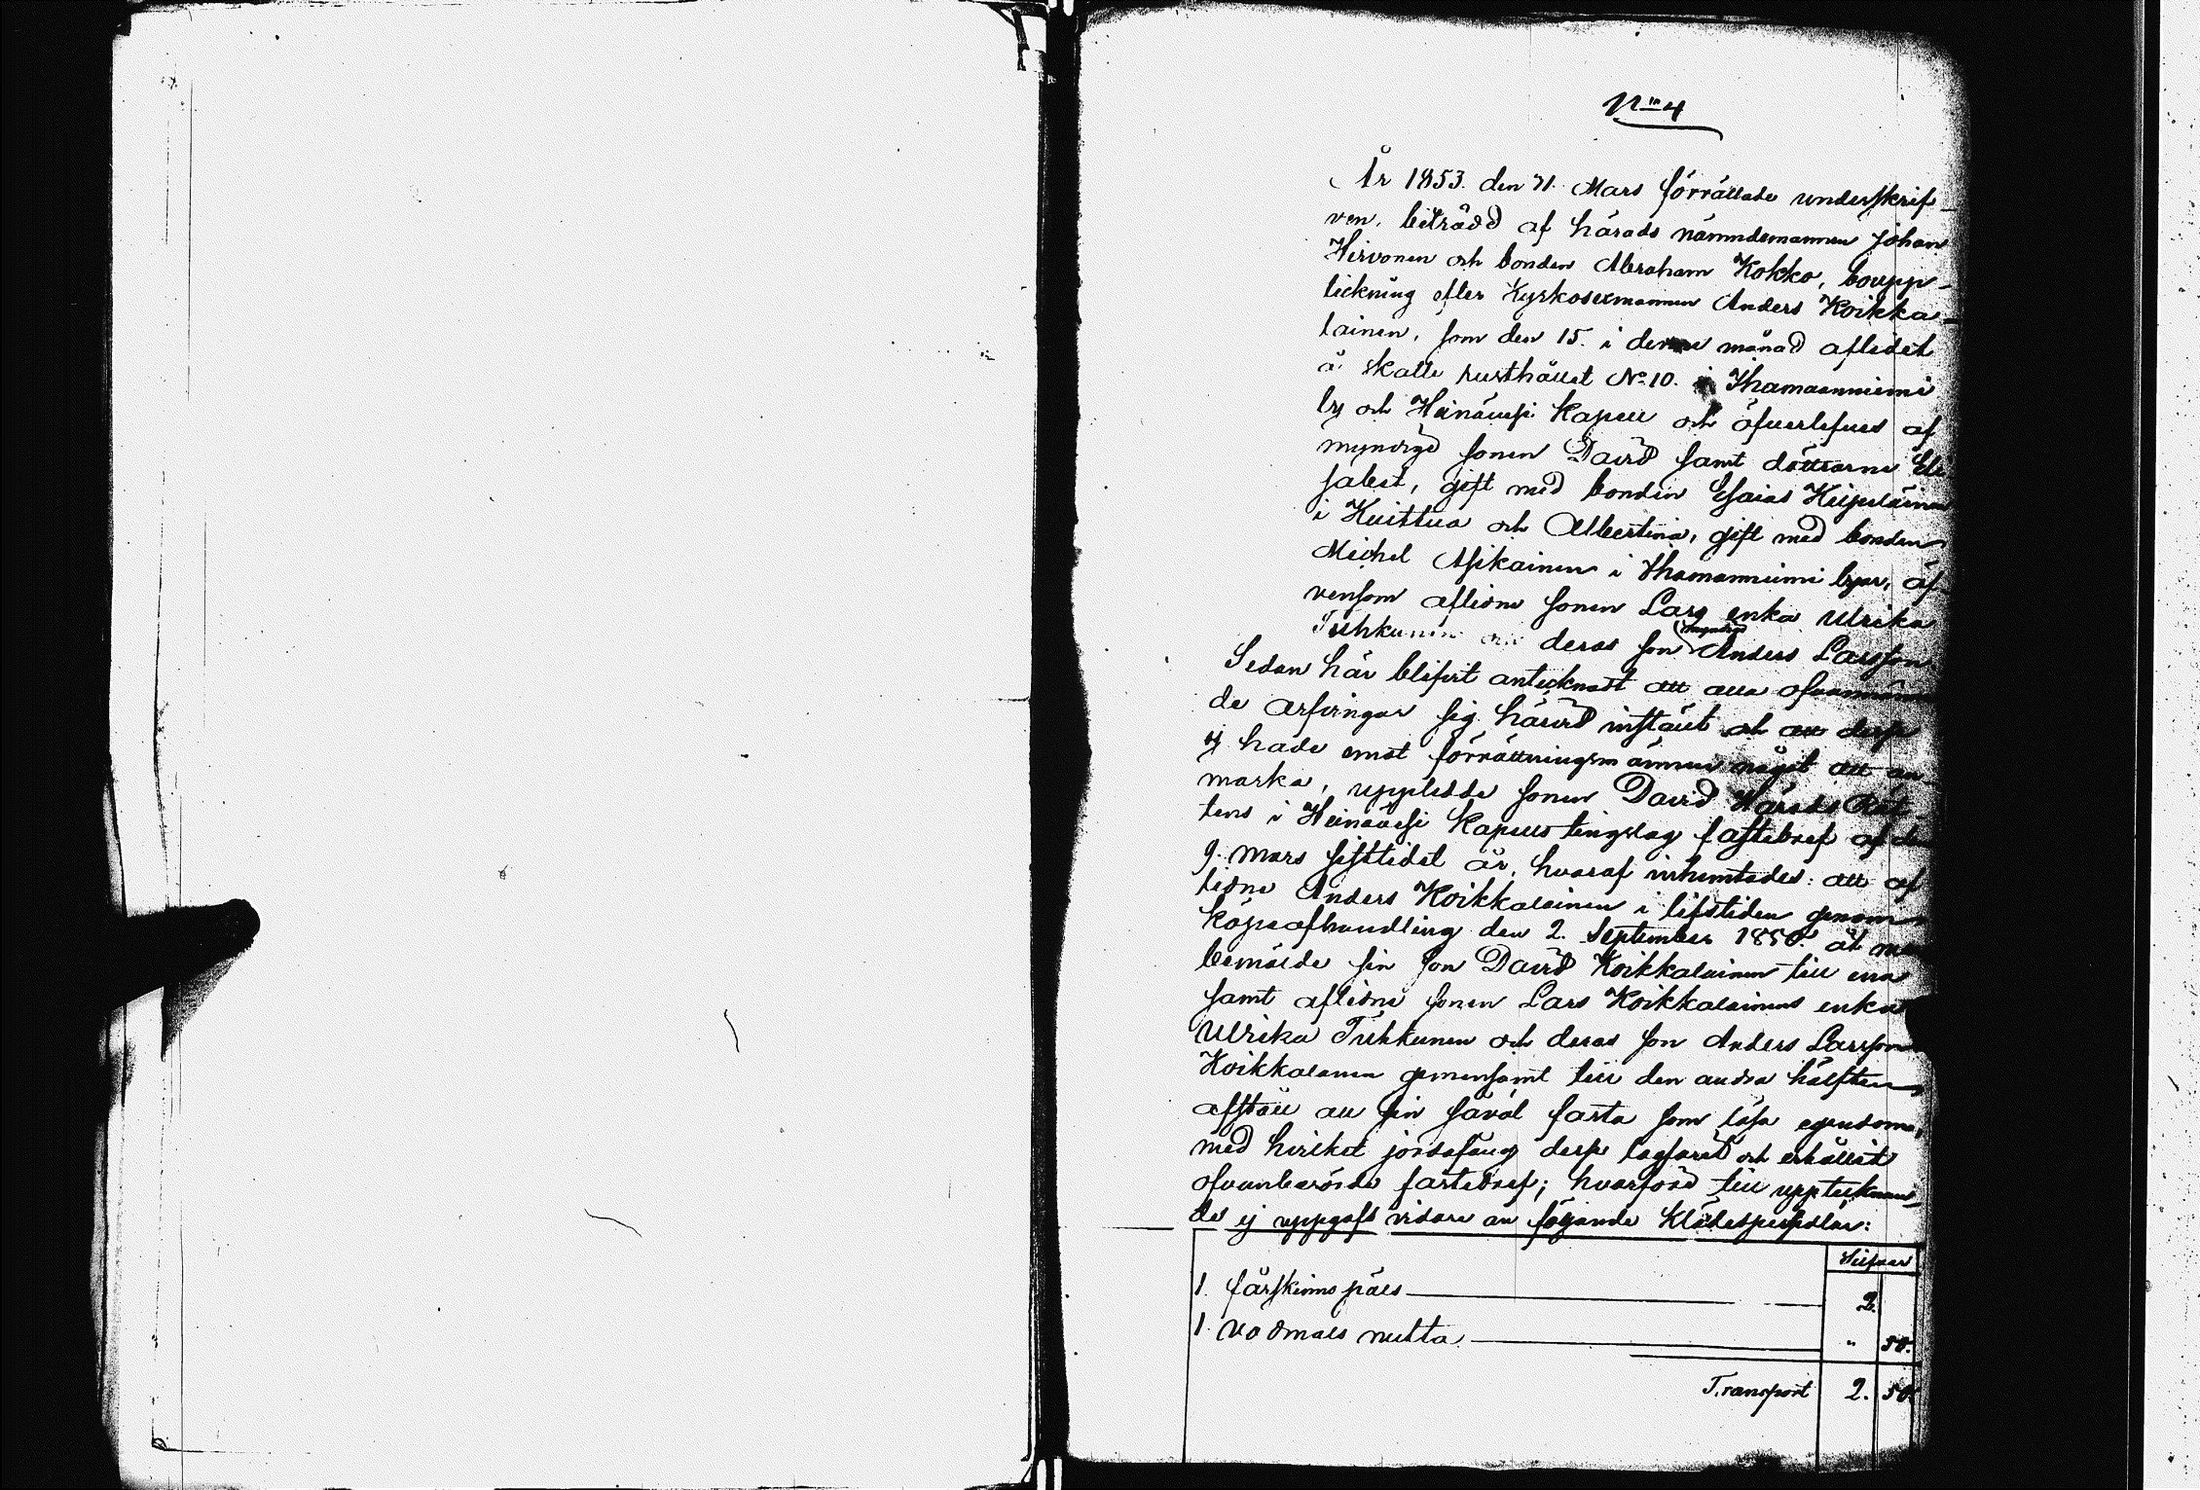 No 4
År 1853. den 31. Mars förrättade underskrif-
ven, biträdd af härads nämndemannen Johan
Hirvonen och bonden Abraham Kokko, boupp-
teckning efter Kyrkosexmannen Anders Koikka-
lainen, som den 15. i denne månad aflidit
å Skatte rusthållet No 10. i Ihamaanniemi
by och Heinävesi Kapell och öfverlefves af
myndige sonen David samt döttrarne Eli-
sabet, gift med bonden Esaias Keipeläinen
i Kuittua och Albertina, gift med bonden
Michel Asikainen i Ihamanniemi byar, äf-
vensom aflidne sonen Lars enka Ulrika
Tiihkunen och deras son myndige Anders Larsson
Sedan här blifvit antecknadt att alla ofvannämn-
de arfvingar sig härvid inställt och att desse
ej hade emot förrättningsmännen något att an-
marka, uppledde sonen David Härads Rät-
tens i Heinävesi Kapells tingslag fastebref af den
9. Mars sistlidet år, hvaraf inhemtades: att af-
lidne Anders Koikkalainen i lifstiden genom
köpeafhandling den 2. September 1850. åt
bemälde sin son David Koikkalainen till ena
samt aflidne sonen Lars Koikkalainens enka
Ulrika Tiihkunen och deras son Anders Larsson
Koikkalanen gemensamt till den andra hälften
afstått all sin såväl fasta som lösa egendom,
med hvilket jordafång desse lagfarit och erhållit
ofvanberörde fastebref; hvarföre till upptecknan-
de ej uppgafs vidare än följande Klädespersedlar:
Silfver
1. fårskinns päls 2.
1. vadmals mutta " 50.
Transport 2. 50.